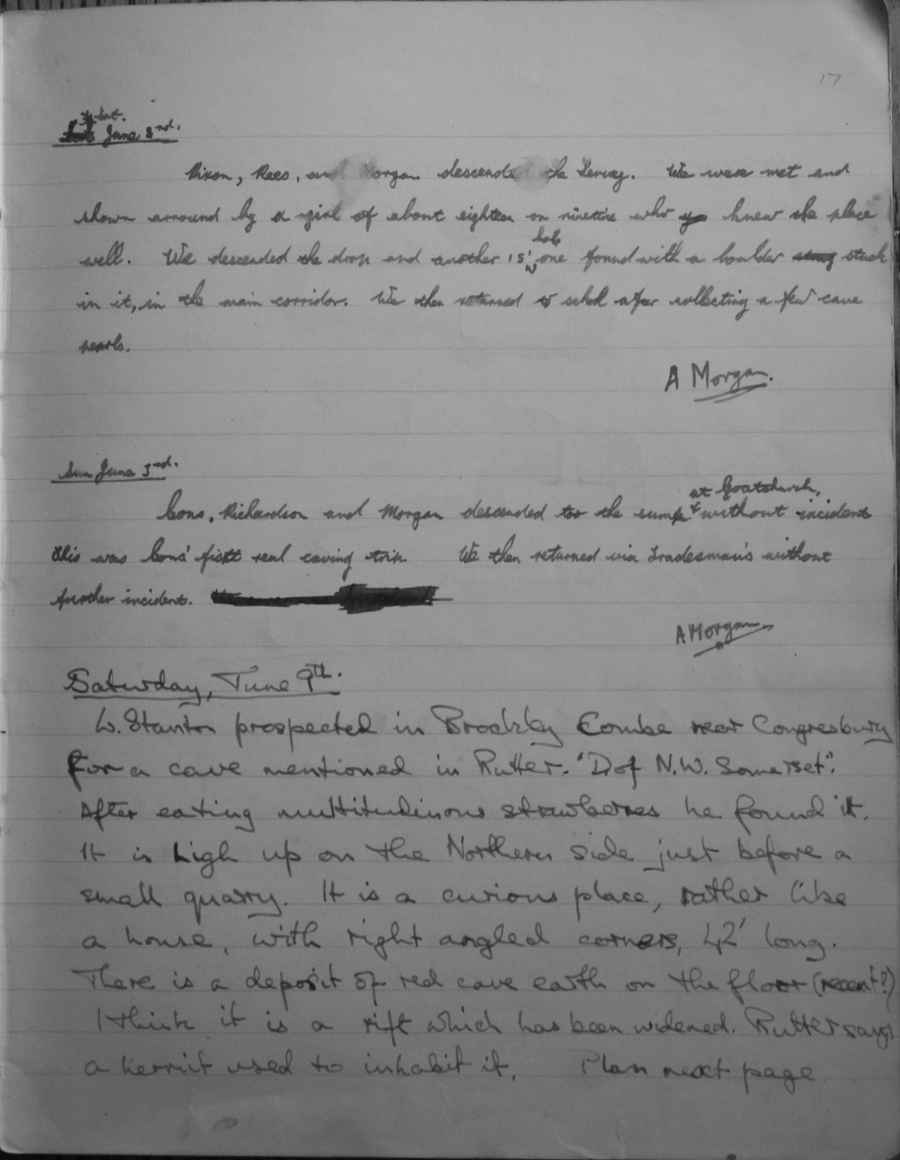 17
Sat. June 2nd.
Dixon, Rees, and Morgan descended the Dervey. We were met and
shown arround by a girl of about eighteen or nineteen who knew the place
well. We descended the drop and another 15' hole one found with a boulder stuck
in it, in the main corridor. We then returned to school after collecting a few cave
pearls.
A Morgan.
Sun June 3rd.
Cons, Richardson and Morgan descended to the sump at Goatchurch, without incident
this was Cons' first real caving trip. We then returned via Tradesman's without
further incident.
A Morgan
Saturday, June 9th.
W. Stanton prospected in Brockley Combe near Congresbury
for a cave mentioned in Rutter. "D of N.W. Somerset".
After eating multitudinous strawberries he found it.
It is high up on the Northern side just before a
small quarry. It is a curious place, rather like
a house, with right angled corners, 42' long.
There is a deposit of red cave earth on the floor (recent?)
I think it is a rift which has been widened. Rutter says
a hermit used to inhabit it. Plan next page